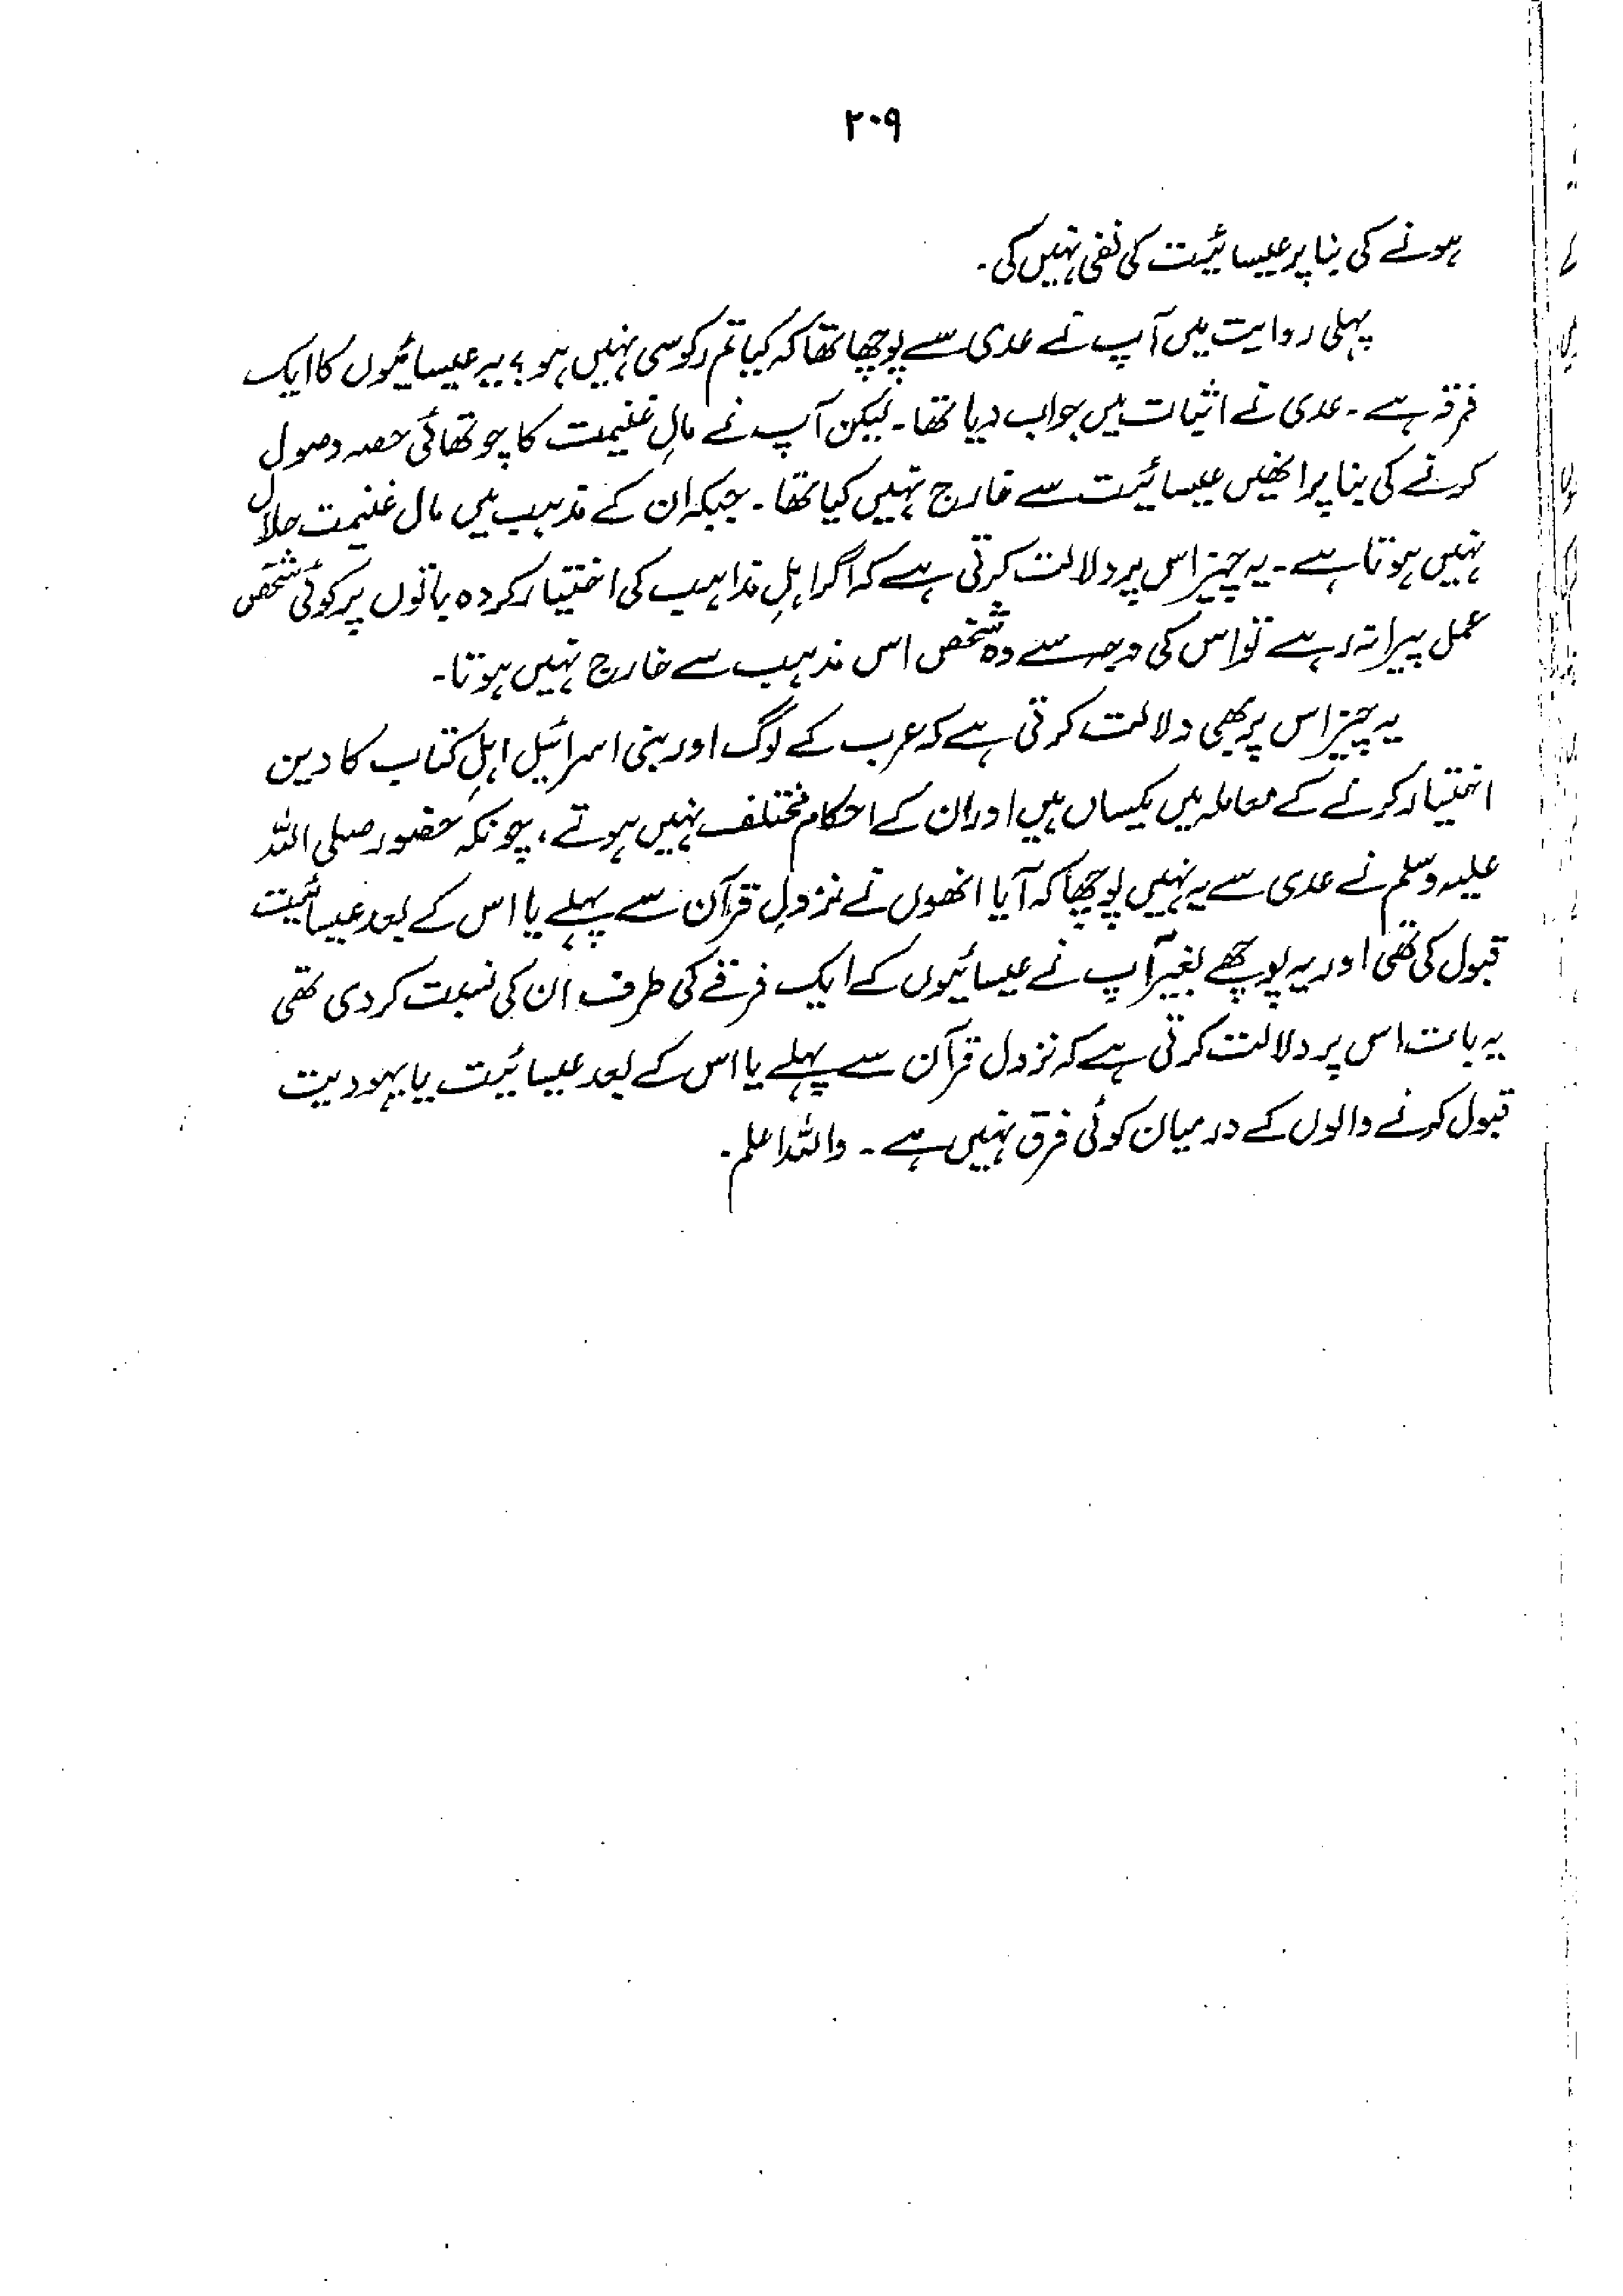 ۲۰۹
ہونے کی بنا پر عیسائیت کی نفی نہیں کی۔
پہلی روایت میں آپ نے عدی سے پوچھا تھا کہ کیا تم رکوسی نہیں ہو؟ یہ عیسائیوں کا ایک
فرقہ ہے۔ عدی نے اثبات میں جواب دیا تھا۔ لیکن آپ نے مالِ غنیمت کا چوتھائی حصہ وصول
کرنے کی بنا پر انھیں عیسائیت سے خارج نہیں کیا تھا۔ جبکہ ان کے مذہب میں مال غنیمت حلال
نہیں ہوتا ہے۔ یہ چیز اس پر دلالت کرتی ہے کہ اگر اہلِ مذاہب کی اختیار کردہ باتوں پر کوئی شخص
عمل پیرا نہ رہے تو اس کی وجہ سے وہ شخص اس مذہب سے خارج نہیں ہوتا۔
یہ چیز اس پر بھی دلالت کرتی ہے کہ عرب کے لوگ اور بنی اسرائیل اہلِ کتاب کا دین
اختیار کرنے کے معاملہ میں یکساں ہیں اور ان کے احکام مختلف نہیں ہوتے، چونکہ حضور صلی اللہ
علیہ وسلم نے عدی سے یہ نہیں پوچھا کہ آیا انھوں نے نزولِ قرآن سے پہلے یا اس کے بعد عیسائیت
قبول کی تھی اور یہ پوچھے بغیر آپ نے عیسائیوں کے ایک فرقے کی طرف ان کی نسبت کر دی تھی
یہ بات اس پر دلالت کرتی ہے کہ نزول قرآن سے پہلے یا اس کے بعد عیسائیت یا یہودیت
قبول کرنے والوں کے درمیان کوئی فرق نہیں ہے۔ واللہ اعلم۔